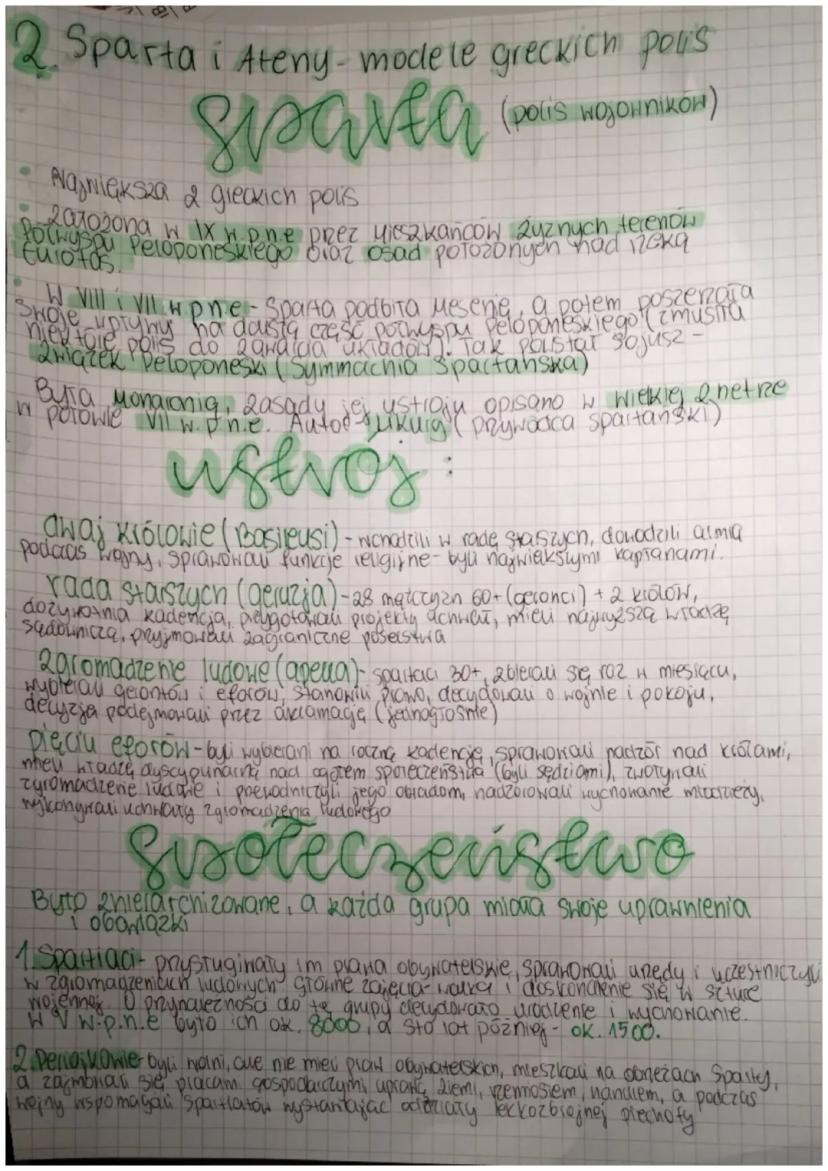 2. Sparta i Ateny - modele greckich polis
Sparta (polis wojowników)
• Największa z greckich polis
• założona w IX w.p.n.e prez mieszkańców żyznych terenów
Półwyspu Peloponeskiego oraz osad położonych nad rzeką
Eurotas.
• W VIII i VII w p.n.e - Sparta podbiła Mesenię, a potem poszerzała
swoje wpływy na dalszą część półwyspu Peloponeskiego (zmusiła
niektóre polis do zawarcia układów). Tak powstał sojusz -
związek Peloponeski (Symmachia Spartańska)
Była monarchią, zasady jej ustroju opisano w Wielkiej Rhetrze
w połowie VII w.p.n.e. Autor - Likurg (przywódca spartański)
ustrój :
dwaj królowie (Basileusi) - wchodzili w radę starszych, dowodzili armią
podczas wojny, sprawowali funkcje religijne - byli największymi kapłanami.
rada starszych (geruzja) - 28 mężczyzn 60+ (geronci) + 2 królów,
dożywotnia kadencja, przygotowali projekty uchwał, mieli najwyższą władzę
sądowniczą, przyjmowali zagraniczne poselstwa
zgromadzenie ludowe (apella) - spartiaci 30+, zbierali się raz w miesiącu,
wybierali gerontów i eforów, stanowili prawo, decydowali o wojnie i pokoju,
decyzja podejmowali przez aklamację (jednogłośnie)
pięciu eforów - byli wybierani na roczną kadencję, sprawowali nadzór nad królami,
mieli władzę dyscyplinarną nad ogółem społeczeństwa (byli sędziami), zwoływali
zgromadzenie ludowe i przewodniczyli jego obradom, nadzorowali wychowanie młodzieży,
wykonywali uchwały zgromadzenia ludowego
Społeczeństwo
Było zhierarchizowane, a każda grupa miała swoje uprawnienia
i obowiązki
1. Spartiaci - przysługiwały im prawa obywatelskie, sprawowali urzędy i uczestniczyli
w zgromadzeniach ludowych główne zajęcia - walka i doskonalenie się w sztuce
wojennej. O przynależności do tej grupy decydowało urodzenie i wychowanie.
W V w.p.n.e było ich ok. 8000, a sto lat później - ok. 1500.
2. Periojkowie - byli wolni, ale nie mieli praw obywatelskich, mieszkali na obrzeżach Sparty,
a zajmowali się pracami gospodarczymi, uprawą ziemi, rzemiosłem, handlem, a podczas
wojny wspomagali Spartiatów wystawiając oddziały lekkozbrojnej piechoty